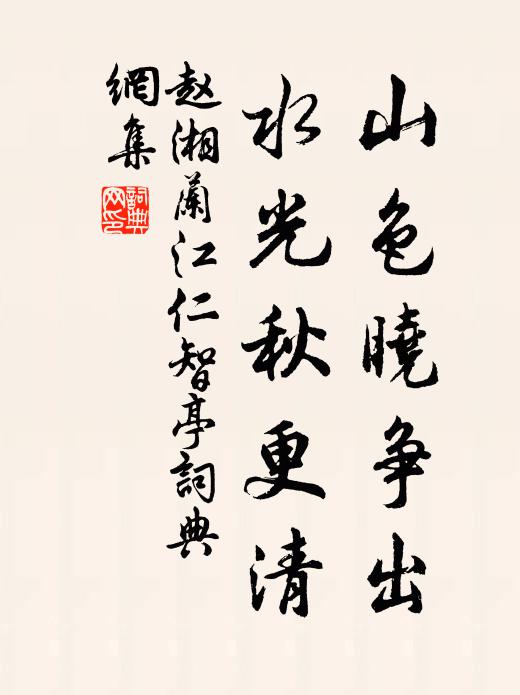 山色曉争出
水光秋更清
赵湘蘭江仁智亭詞典
網集
詞典
网印